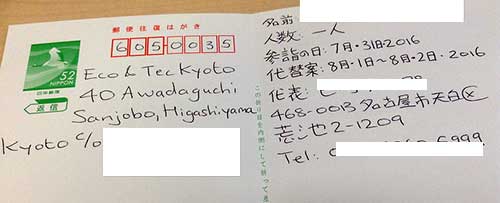 郵便往復はがき
6050035
52
NIPPON
日本郵便
返信
Eco & Tec Kyoto
40 Awadaguchi
Sanjobo, Higashiyama
Kyoto c/o
この折り目を内側にして折って
名前
人数: 一人
参詣の日: 7月・31日・2016
代替案: 8月・1日〜8月・2日・2016
代表:
468-0013 名古屋市天白区
荒池2-1209
Tel:
6999